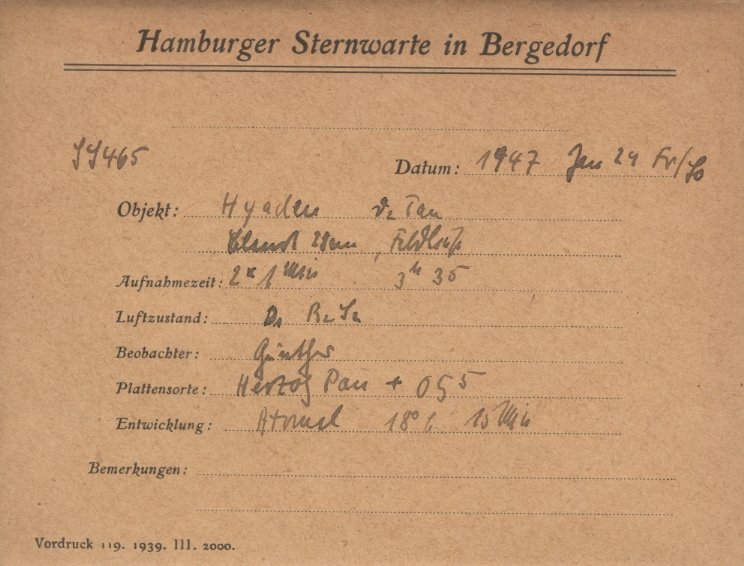 Hamburger Sternwarte in Bergedorf
SS465 Datum: 1947 Jan 24 Fr/So
Objekt: Hyaden Tau
28cm,
Aufnahmezeit: 2x 1 Min 3h 35
Luftzustand: D1 R2 S2
Beobachter: Günther
Plattensorte: Hertzog Pan + OG5
Entwicklung: 18° 15 Min
Bemerkungen:
Vordruck 119. 1939. III. 2000.